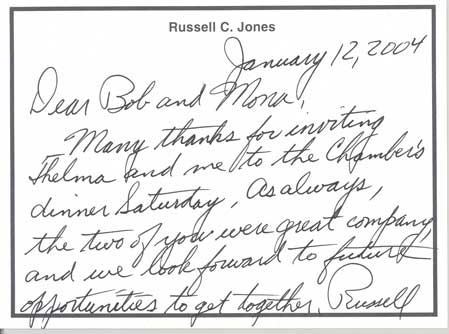 Russell C. Jones
January 12, 2004
Dear Bob and Mona,
Many thanks for inviting
Thelma and me to the Chamber's
dinner Saturday. As always,
the two of you were great company,
and we look forward to future
opportunities to get together. Russell